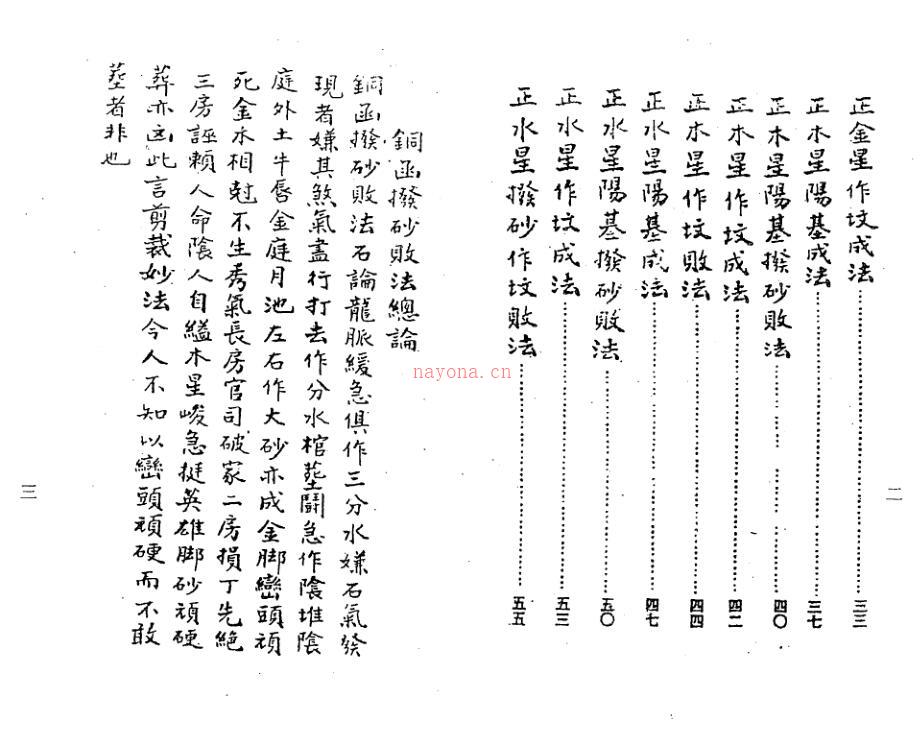 正金星作坟成法 三三
正木星陽基成法 三七
正木星陽基撥砂敗法 四〇
正木星作坟成法 四二
正木星作坟敗法 四四
正水星陽基成法 四七
正水星陽基撥砂敗法 五〇
正水星作坟成法 五三
正水星撥砂作坟敗法 五五
二
銅函撥砂敗法總論
銅函撥砂敗法石論龍脈緩急俱作三分水嫌石氣發
現者嫌其煞氣盡行打去作分水棺塟鬪急作陰堆陰
庭外土牛唇金庭月池左右作大砂亦成金脚巒頭頑
死金水相尅不生秀氣長房官司破家二房損丁先絕
三房誣賴人命陰人自縊木星峻急挺英雄脚砂頑硬
葬亦凶此言剪裁妙法今人不知以巒頭頑硬而不敢
塟者非也
三
nayona.cn